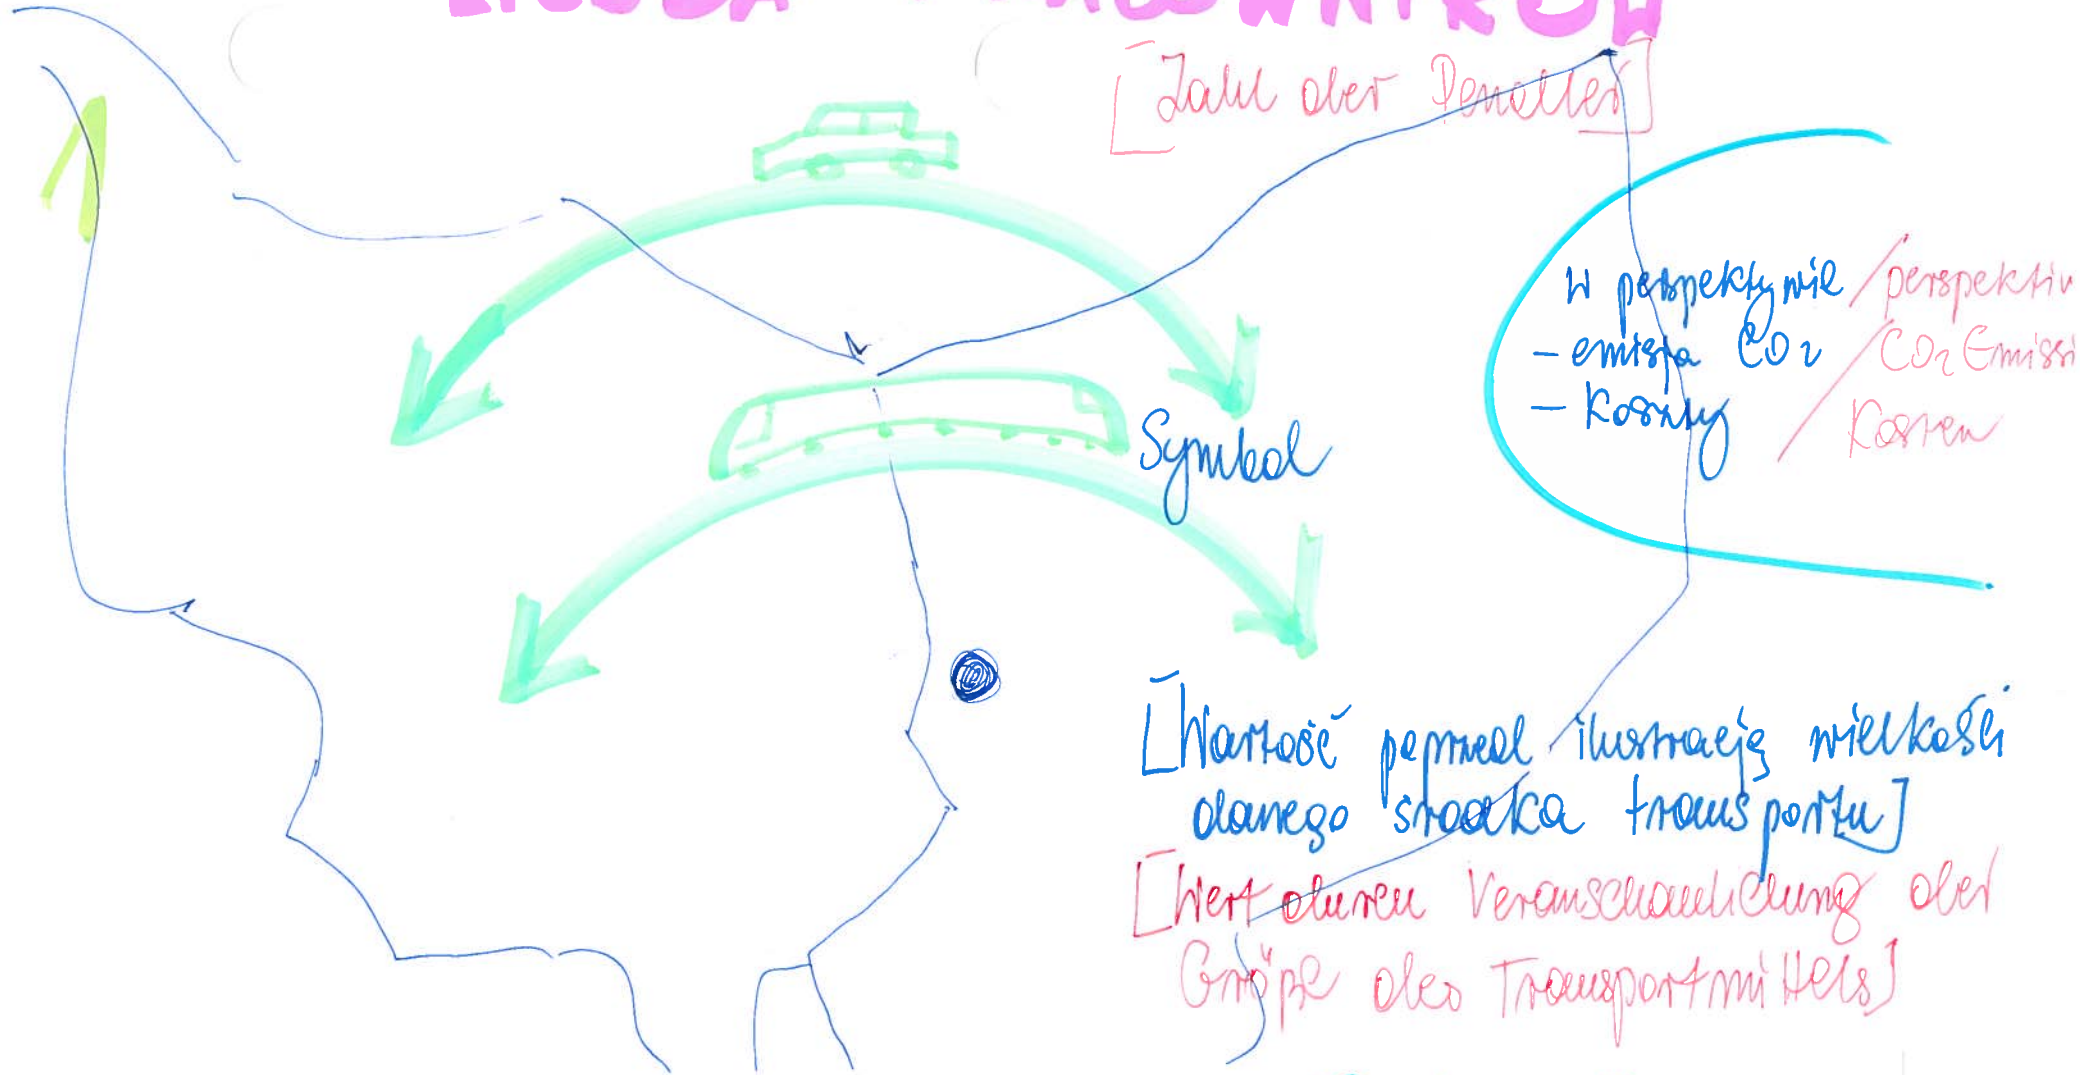 [Zahl der Pendler]
1
W perspektywie / perspektiv
- emisja CO₂ / CO₂ Emissi
- Koszty / Kosten
Symbol
[Wartość poprzed ilustrację wielkości
danego środka transportu]
[Wert durch Veranschaulichung der
Größe des Transportmittels]